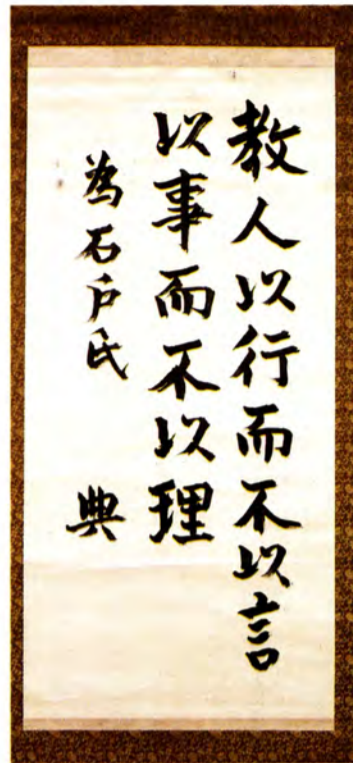 教人以行而不以言
以事而不以理
為石戸氏 典